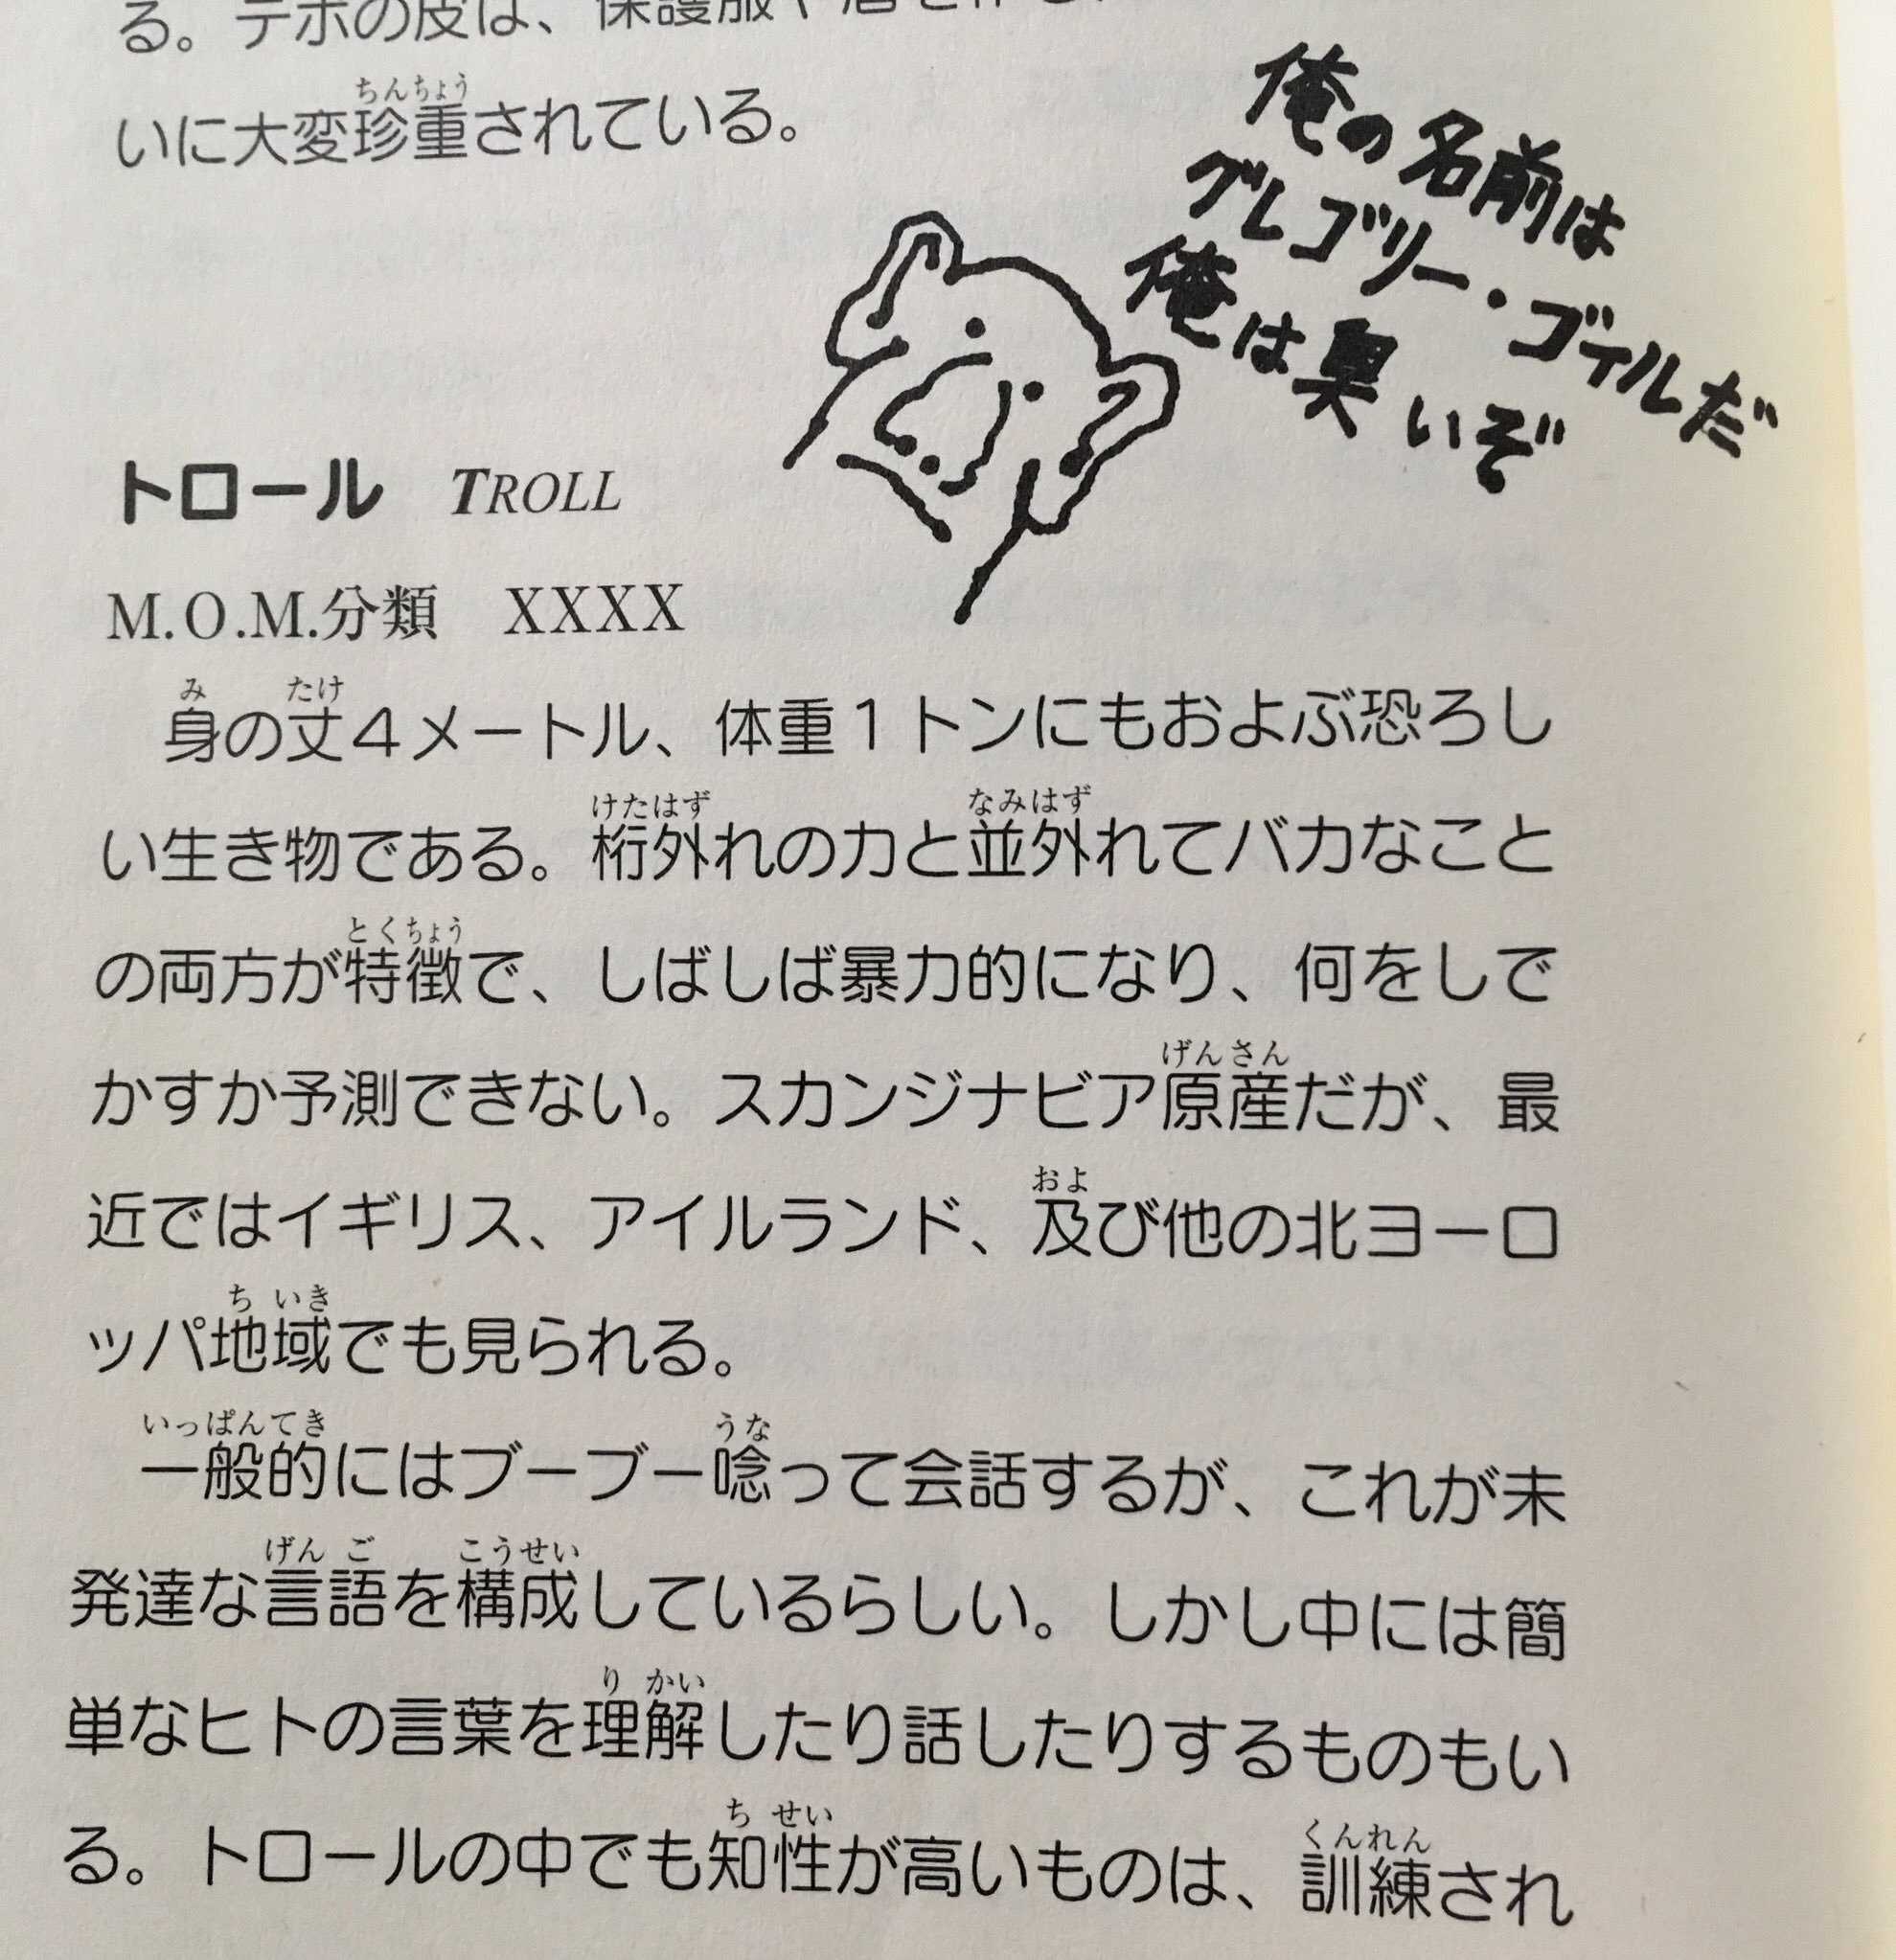 る。テボの皮は、保護服や盾を作
いに大変珍重されている。
ちんちょう
俺の名前は
グレゴリー・ゴイルだ
俺は臭いぞ
トロール TROLL
M.O.M.分類 XXXX
み たけ
身の丈4メートル、体重1トンにもおよぶ恐ろし
けたはず なみはず
い生き物である。桁外れの力と並外れてバカなこと
とくちょう
の両方が特徴で、しばしば暴力的になり、何をしで
げんさん
かすか予測できない。スカンジナビア原産だが、最
およ
近ではイギリス、アイルランド、及び他の北ヨーロ
ちいき
ッパ地域でも見られる。
いっぱんてき うな
一般的にはブーブー唸って会話するが、これが未
げんご こうせい
発達な言語を構成しているらしい。しかし中には簡
りかい
単なヒトの言葉を理解したり話したりするものもい
ちせい くんれん
る。トロールの中でも知性が高いものは、訓練され